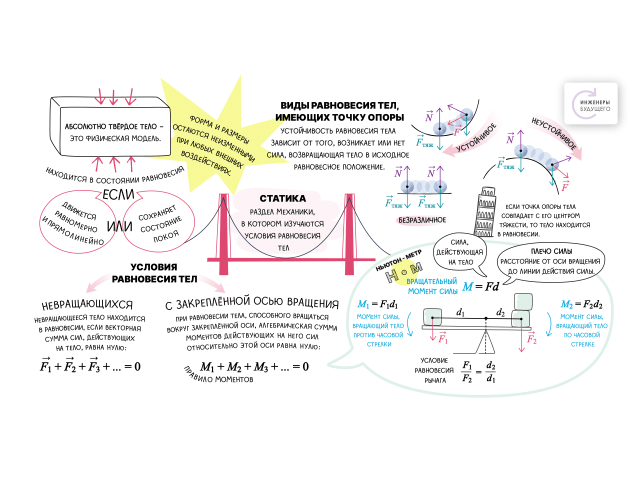 АБСОЛЮТНО ТВЁРДОЕ ТЕЛО –
ЭТО ФИЗИЧЕСКАЯ МОДЕЛЬ.
ФОРМА И РАЗМЕРЫ
ОСТАЮТСЯ НЕИЗМЕННЫМИ
ПРИ ЛЮБЫХ ВНЕШНИХ
ВОЗДЕЙСТВИЯХ.
НАХОДИТСЯ В СОСТОЯНИИ РАВНОВЕСИЯ
ЕСЛИ
ДВИЖЕТСЯ
РАВНОМЕРНО
И ПРЯМОЛИНЕЙНО
ИЛИ
СОХРАНЯЕТ
СОСТОЯНИЕ
ПОКОЯ
СТАТИКА
РАЗДЕЛ МЕХАНИКИ,
В КОТОРОМ ИЗУЧАЮТСЯ
УСЛОВИЯ РАВНОВЕСИЯ
ТЕЛ
ВИДЫ РАВНОВЕСИЯ ТЕЛ,
ИМЕЮЩИХ ТОЧКУ ОПОРЫ
УСТОЙЧИВОСТЬ РАВНОВЕСИЯ ТЕЛА
ЗАВИСИТ ОТ ТОГО, ВОЗНИКАЕТ ИЛИ НЕТ
СИЛА, ВОЗВРАЩАЮЩАЯ ТЕЛО В ИСХОДНОЕ
РАВНОВЕСНОЕ ПОЛОЖЕНИЕ.
N
F
Fтяж
УСТОЙЧИВОЕ
N N
Fтяж Fтяж
БЕЗРАЗЛИЧНОЕ
НЕУСТОЙЧИВОЕ
N
Fтяж
F
ИНЖЕНЕРЫ
БУДУЩЕГО
ЕСЛИ ТОЧКА ОПОРЫ ТЕЛА
СОВПАДАЕТ С ЕГО ЦЕНТРОМ
ТЯЖЕСТИ, ТО ТЕЛО НАХОДИТСЯ
В РАВНОВЕСИИ.
УСЛОВИЯ
РАВНОВЕСИЯ ТЕЛ
НЕВРАЩАЮЩИХСЯ
НЕВРАЩАЮЩЕЕСЯ ТЕЛО НАХОДИТСЯ
В РАВНОВЕСИИ, ЕСЛИ ВЕКТОРНАЯ
СУММА СИЛ, ДЕЙСТВУЮЩИХ
НА ТЕЛО, РАВНА НУЛЮ:
F₁ + F₂ + F₃ + ... = 0
С ЗАКРЕПЛЁННОЙ ОСЬЮ ВРАЩЕНИЯ
ПРИ РАВНОВЕСИИ ТЕЛА, СПОСОБНОГО ВРАЩАТЬСЯ
ВОКРУГ ЗАКРЕПЛЁННОЙ ОСИ, АЛГЕБРАИЧЕСКАЯ СУММА
МОМЕНТОВ ДЕЙСТВУЮЩИХ НА НЕГО СИЛ
ОТНОСИТЕЛЬНО ЭТОЙ ОСИ РАВНА НУЛЮ:
M₁ + M₂ + M₃ + ... = 0
ПРАВИЛО МОМЕНТОВ
НЬЮТОН - МЕТР
Н О М
СИЛА,
ДЕЙСТВУЮЩАЯ
НА ТЕЛО
ПЛЕЧО СИЛЫ
РАССТОЯНИЕ ОТ ОСИ ВРАЩЕНИЯ
ДО ЛИНИИ ДЕЙСТВИЯ СИЛЫ.
ВРАЩАТЕЛЬНЫЙ
МОМЕНТ СИЛЫ
M = Fd
M₁ = F₁d₁
МОМЕНТ СИЛЫ,
ВРАЩАЮЩИЙ ТЕЛО
ПРОТИВ ЧАСОВОЙ
СТРЕЛКИ
d₁ d₂
F₁ F₂
M₂ = F₂d₂
МОМЕНТ СИЛЫ,
ВРАЩАЮЩИЙ ТЕЛО
ПО ЧАСОВОЙ
СТРЕЛКЕ
УСЛОВИЕ
РАВНОВЕСИЯ
РЫЧАГА
F₁/F₂ = d₂/d₁